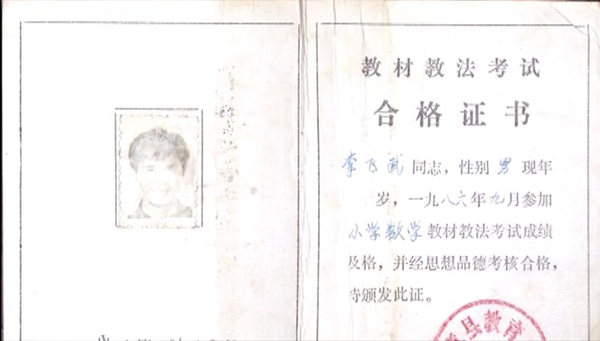 教材教法考试
合格证书
李飞武同志，性别男现年
岁，一九八六年九月参加
小学数学教材教法考试成绩
及格，并经思想品德考核合格，
特颁发此证。
县教育